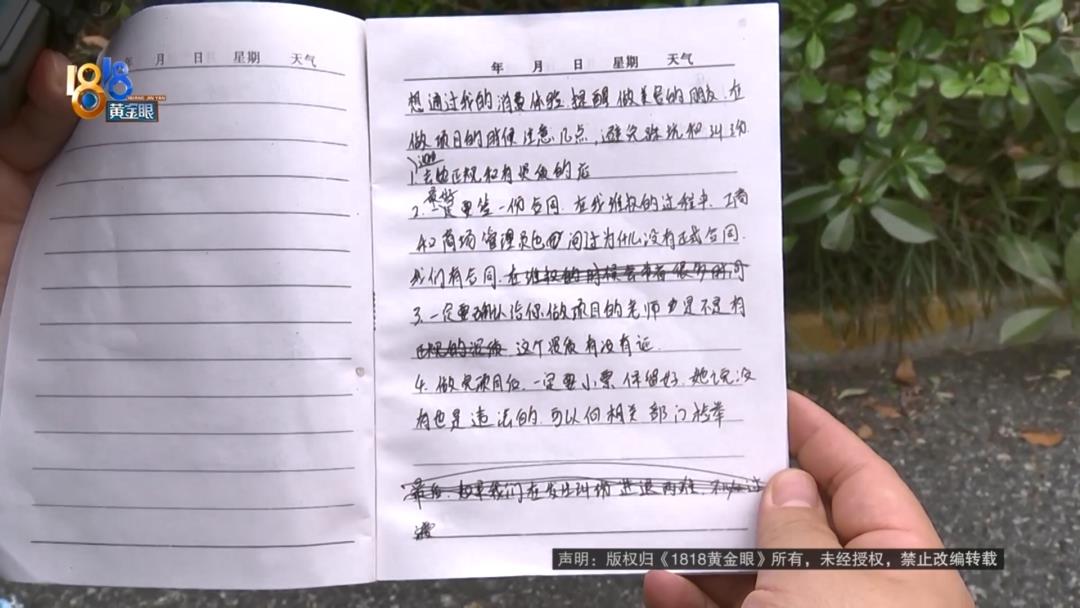 1818
黄金眼
HUANG JIN YAN
年 月 日 星期 天气
年 月 日 星期 天气
想通过我的消费体验 提醒做美容的朋友.在
做项目的时候注意几点,避免踩坑和纠纷.
1.去 正规和有 的店
2.一定要签一份合同.在我维权的过程中.工商
和商场管理员 问过为什么没有正式合同.
我们有合同.在维权的时候会 很多时间
3.一定要确认给你做项目的老师 是不是有
正规的 这个 有没有证.
4.做完项目后.一定要小票保留好.她说没
有也是违法的.可以向相关部门检举
最后. 我们在发生纠纷 进退两难.
声明:版权归《1818黄金眼》所有,未经授权,禁止改编转载